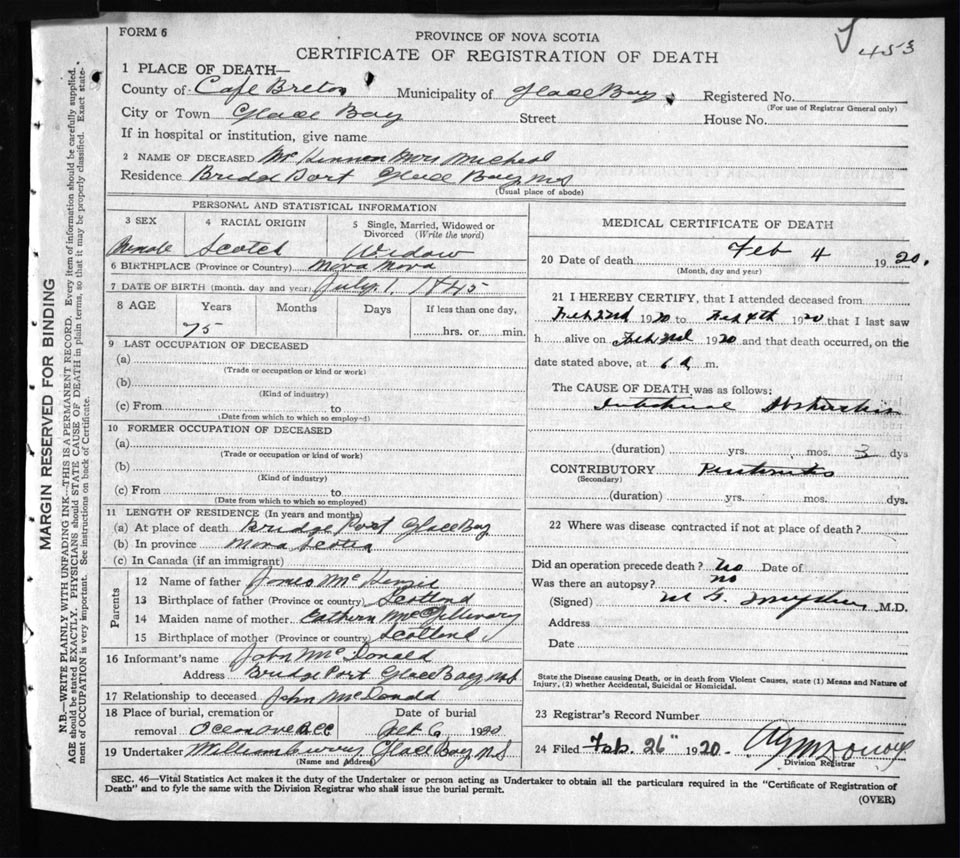 FORM 6
453
PROVINCE OF NOVA SCOTIA
CERTIFICATE OF REGISTRATION OF DEATH
1 PLACE OF DEATH—
County of Cape Breton Municipality of Glace Bay Registered No.
(For use of Registrar General only)
City or Town Glace Bay Street House No.
If in hospital or institution, give name
2 NAME OF DECEASED Mc Kinnon Mrs Micheal
Residence Bridge Port Glace Bay N S
(Usual place of abode)
PERSONAL AND STATISTICAL INFORMATION
3 SEX 4 RACIAL ORIGIN 5 Single, Married, Widowed or Divorced (Write the word)
Female Scotch Widow
6 BIRTHPLACE (Province or Country)
7 DATE OF BIRTH (month, day and year) July 1 1845
8 AGE Years Months Days If less than one day,
75 hrs. or min.
9 LAST OCCUPATION OF DECEASED
(a)
(Trade or occupation or kind or work)
(b)
(Kind of industry)
(c) From to
(Date from which to which so employed)
10 FORMER OCCUPATION OF DECEASED
(a)
(Trade or occupation or kind of work)
(b)
(Kind of industry)
(c) From to
(Date from which to which so employed)
11 LENGTH OF RESIDENCE (In years and months)
(a) At place of death Bridge Port Glace Bay
(b) In province Nova Scotia
(c) In Canada (if an immigrant)
Parents
12 Name of father James Mc Kenzie
13 Birthplace of father (Province or country) Scotland
14 Maiden name of mother Cathern McGillivary
15 Birthplace of mother (Province or country) Scotland
16 Informant's name John McDonald
Address Bridge Port Glace Bay N S
17 Relationship to deceased John McDonald
18 Place of burial, cremation or removal Date of burial
Feb 6 1920
19 Undertaker William Curry Glace Bay N S
(Name and Address)
MEDICAL CERTIFICATE OF DEATH
20 Date of death Feb 4 1920.
(Month, day and year)
21 I HEREBY CERTIFY, that I attended deceased from
Feb 2nd 1920 to Feb 4th 1920 that I last saw
h alive on Feb 3rd 1920 and that death occurred, on the
date stated above, at 6 a m.
The CAUSE OF DEATH was as follows:
Intestinal Obstruction
(duration) yrs. mos. 3 dys
CONTRIBUTORY Peritonitis
(Secondary)
(duration) yrs. mos. dys.
22 Where was disease contracted if not at place of death?
Did an operation precede death? no Date of
Was there an autopsy? no
(Signed) M.D.
Address
Date
State the Disease causing Death, or in death from Violent Causes, state (1) Means and Nature of Injury, (2) whether Accidental, Suicidal or Homicidal.
23 Registrar's Record Number
24 Filed Feb. 26" 1920.
Division Registrar
SEC. 46—Vital Statistics Act makes it the duty of the Undertaker or person acting as Undertaker to obtain all the particulars required in the "Certificate of Registration of
Death" and to fyle the same with the Division Registrar who shall issue the burial permit.
(OVER)
MARGIN RESERVED FOR BINDING
N.B.—WRITE PLAINLY WITH UNFADING INK—THIS IS A PERMANENT RECORD. Every item of information should be carefully supplied.
AGE should be stated EXACTLY. PHYSICIANS should STATE CAUSE OF DEATH in plain terms, so that it may be properly classified. Exact state-
ment of OCCUPATION is very important. See instructions on back of Certificate.